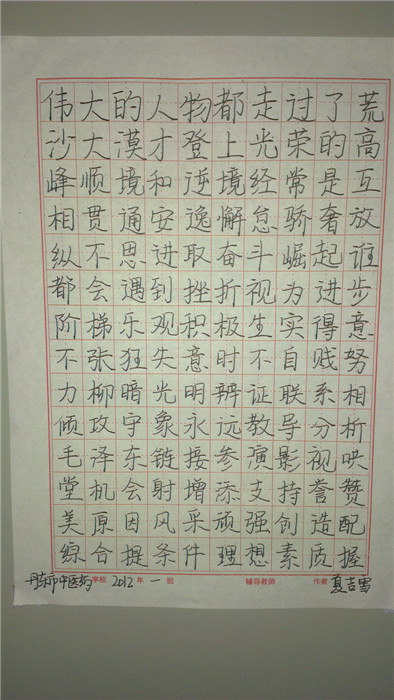 伟大的人物都走过了荒
沙大漠才登上光荣的高
峰顺境和逆境经常是互
相贯通安逸懈怠骄奢放
纵不思进取奋斗崛起谁
都会遇到挫折视为进步
阶梯乐观积极生实得意
不张狂失意时不自贱努
力柳暗光明辨证联系相
倾攻宇象永远教导分析
毛泽东链接参演影视哄
堂机会射增添支持誉赞
美原因风采顽强创造配
综合提条件理想素质握
丹东市中医药学校 2012年 一班 辅导教师 作者 夏吉雪